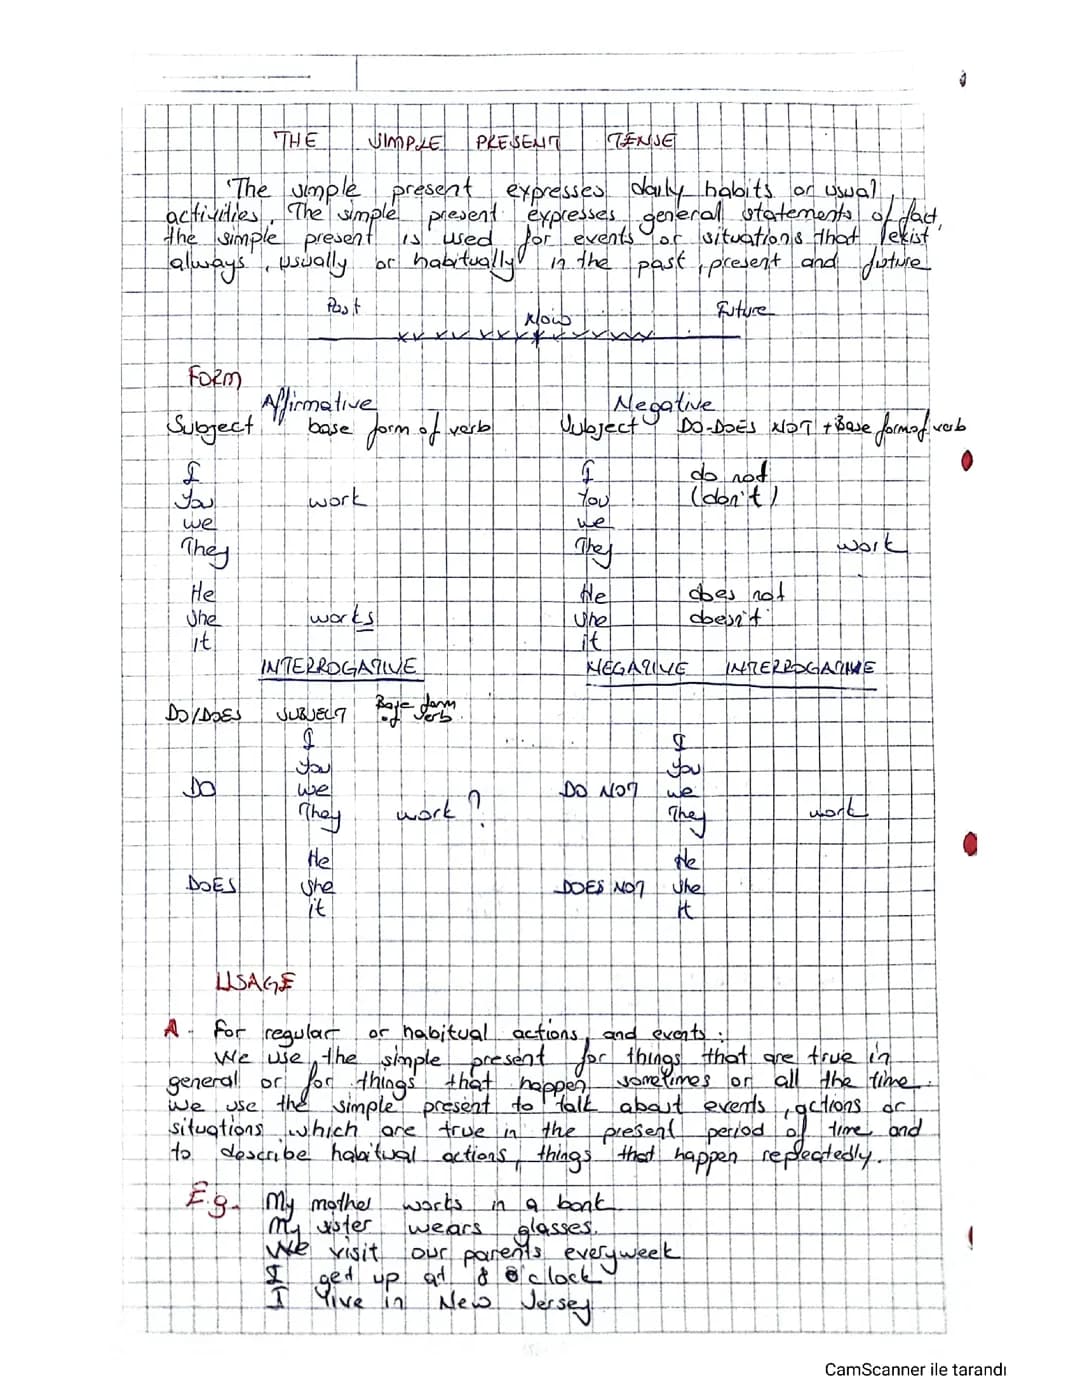 THE SIMPLE PRESENT TENSE
The simple present expresses daily habits or usual
activities. The simple present expresses general statements of fact,
the simple present is used for events or situations that exist
always, usually or habitually in the past, present and future
Past Now Future
xx xx xx xxx x xxxxxxx
FORM
Affirmative Negative
Subject base form of verb Subject DO-DOES NOT + Base form of verb
I I do not
You work You (don't)
we we
They They work
He He does not
she works she doesn't
it it
INTERROGATIVE NEGATIVE INTERROGATIVE
DO/DOES SUBJECT Base form
of verb
I I
You You
DO we DO NOT we
They work? They work
He He
DOES she DOES NOT she
it it
USAGE
A- for regular or habitual actions and events:
We use the simple present for things that are true in
general or for things that happen sometimes or all the time.
We use the simple present to talk about events, actions or
situations which are true in the present period of time and
to describe habitual actions, things that happen repeatedly.
E.g. My mother works in a bank
My sister wears glasses.
We visit our parents everyweek
I get up at 8 o'clock
I live in New Jersey
CamScanner ile tarandı